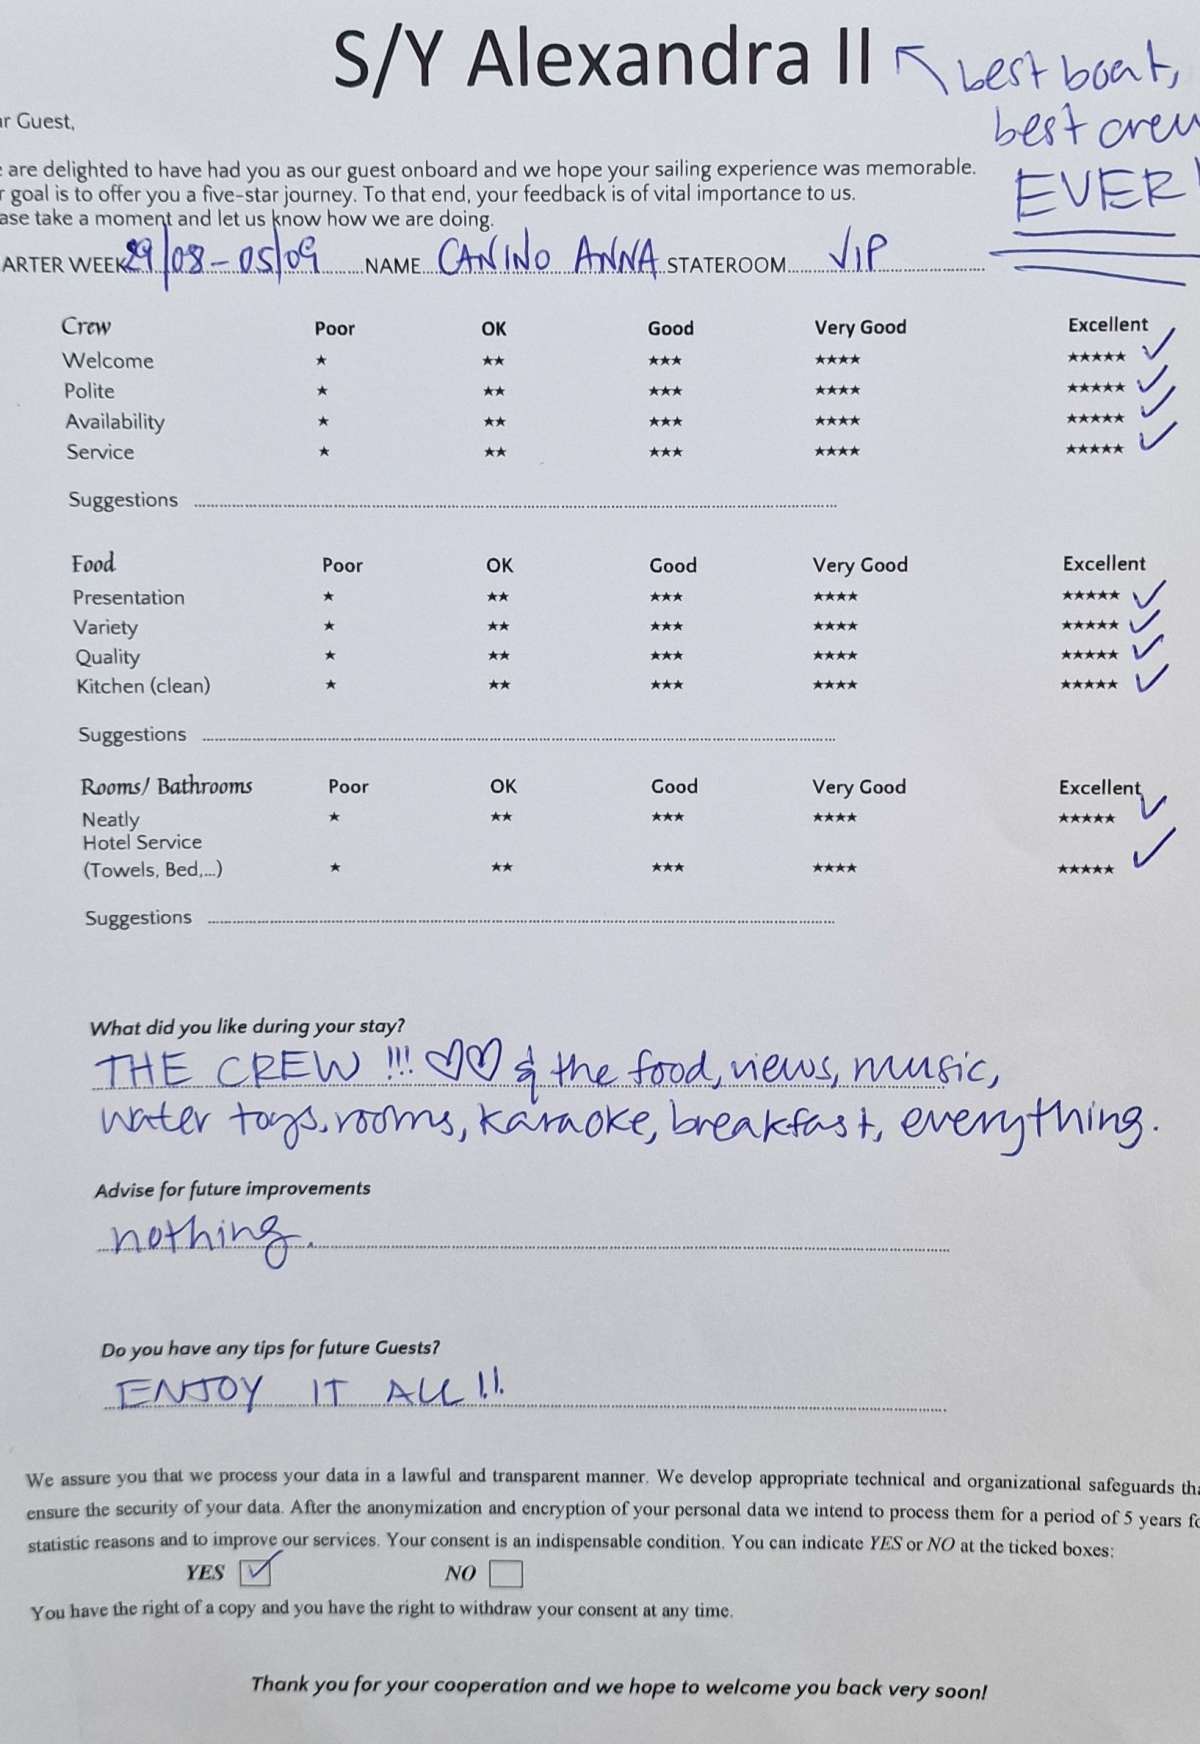 S/Y Alexandra II ↖ best boat,
best crew
EVER!
r Guest,
are delighted to have had you as our guest onboard and we hope your sailing experience was memorable.
r goal is to offer you a five-star journey. To that end, your feedback is of vital importance to us.
ase take a moment and let us know how we are doing.
ARTER WEEK 29/08-05/09 NAME CANINO ANNA STATEROOM VIP
Crew Poor OK Good Very Good Excellent
Welcome ★ ★★ ★★★ ★★★★ ★★★★★ ✓
Polite ★ ★★ ★★★ ★★★★ ★★★★★ ✓
Availability ★ ★★ ★★★ ★★★★ ★★★★★ ✓
Service ★ ★★ ★★★ ★★★★ ★★★★★ ✓
Suggestions
Food Poor OK Good Very Good Excellent
Presentation ★ ★★ ★★★ ★★★★ ★★★★★ ✓
Variety ★ ★★ ★★★ ★★★★ ★★★★★ ✓
Quality ★ ★★ ★★★ ★★★★ ★★★★★ ✓
Kitchen (clean) ★ ★★ ★★★ ★★★★ ★★★★★ ✓
Suggestions
Rooms/ Bathrooms Poor OK Good Very Good Excellent
Neatly ★ ★★ ★★★ ★★★★ ★★★★★ ✓
Hotel Service
(Towels, Bed,...) ★ ★★ ★★★ ★★★★ ★★★★★ ✓
Suggestions
What did you like during your stay?
THE CREW !!! ♡♡ & the food, views, music,
water toys, rooms, karaoke, breakfast, everything.
Advise for future improvements
nothing.
Do you have any tips for future Guests?
ENJOY IT ALL!!
We assure you that we process your data in a lawful and transparent manner. We develop appropriate technical and organizational safeguards tha
ensure the security of your data. After the anonymization and encryption of your personal data we intend to process them for a period of 5 years fo
statistic reasons and to improve our services. Your consent is an indispensable condition. You can indicate YES or NO at the ticked boxes:
YES ☑ NO ☐
You have the right of a copy and you have the right to withdraw your consent at any time.
Thank you for your cooperation and we hope to welcome you back very soon!